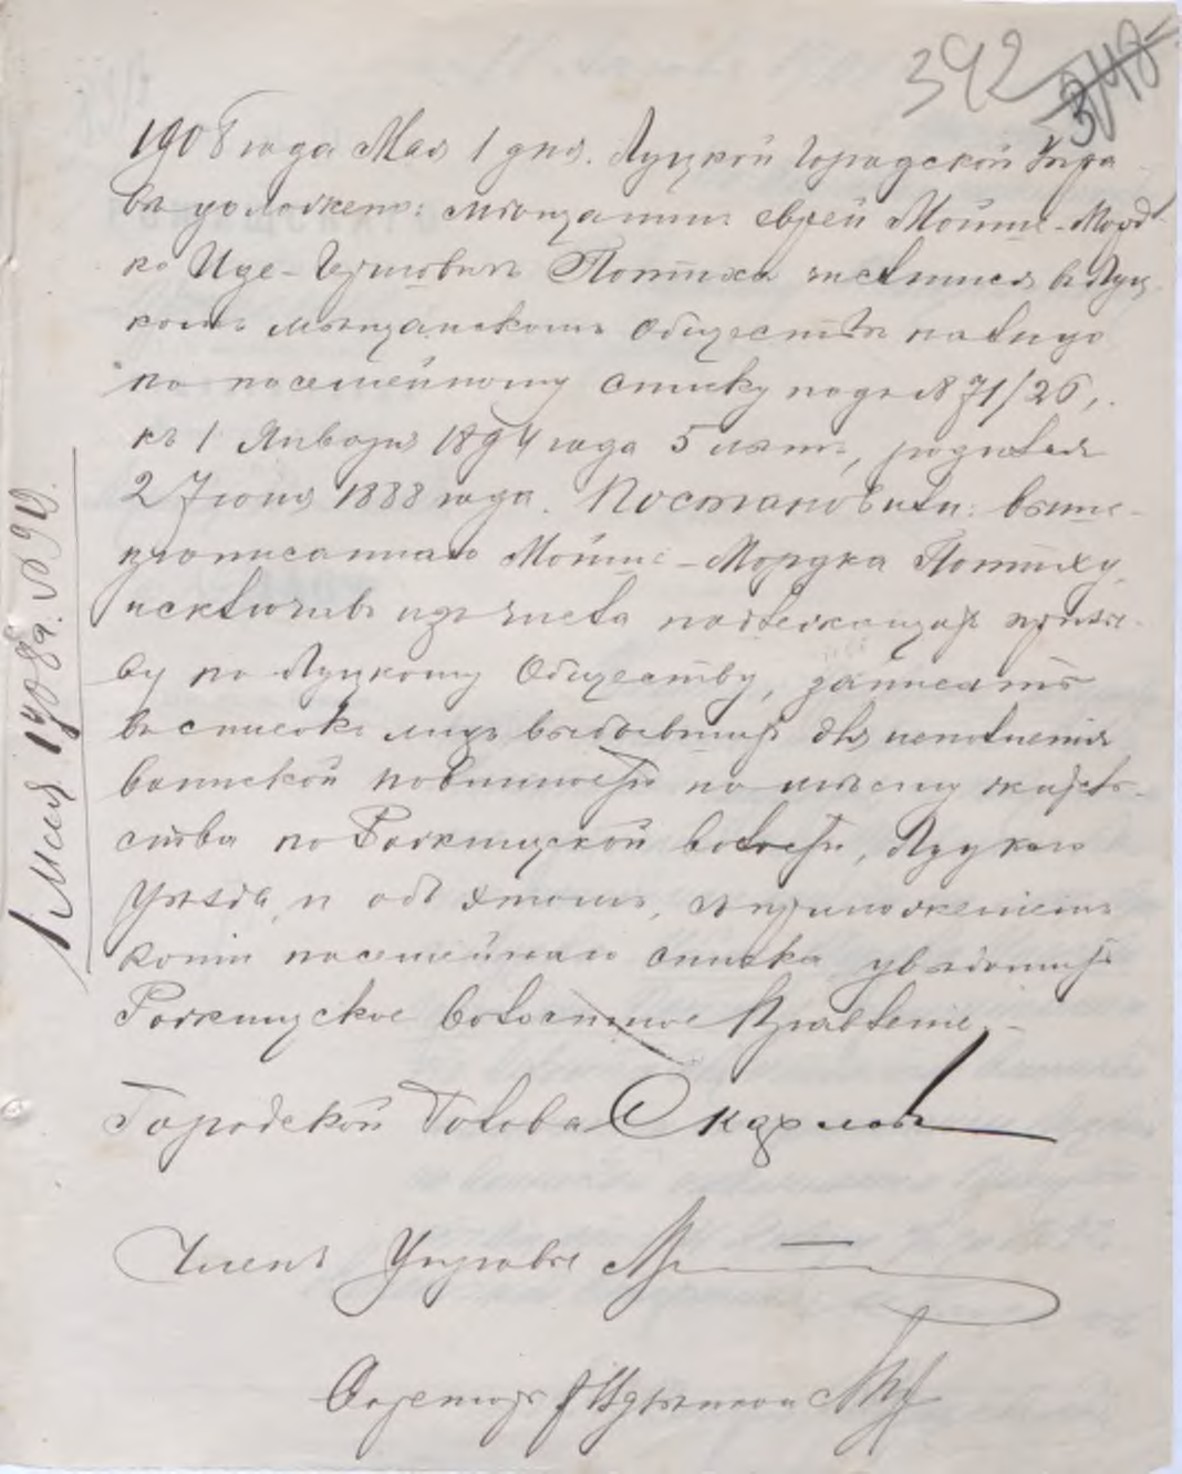 392 348
1908 года Мая 1 дня. Луцкой Городской Упра-
вѣ доложено: мѣщанинъ еврей Мойше-Морд-
ко Иде-Гершовичъ Потиха числится въ Луц-
комъ мѣщанскомъ Обществѣ
по посемейному списку подъ № 71/26,
къ 1 Января 1894 года 5 лѣтъ, родился
2 Іюня 1888 года. Постановили: выше-
прописаннаго Мойше-Мордка Потиху,
исключивъ изъ числа подлежащихъ призы-
ву по Луцкому Обществу, записать
въ списокъ лицъ выбывшихъ для исполненія
воинской повинности по мѣсту житель-
ства по Рожищской волости, Луцкаго
Уѣзда, и объ этомъ, съ приложеніемъ
копіи посемейнаго списка увѣдомить
Рожищское волостное Правленіе.
Городской Голова
Членъ Управы
Секретарь
1 Мая 1908 г. №